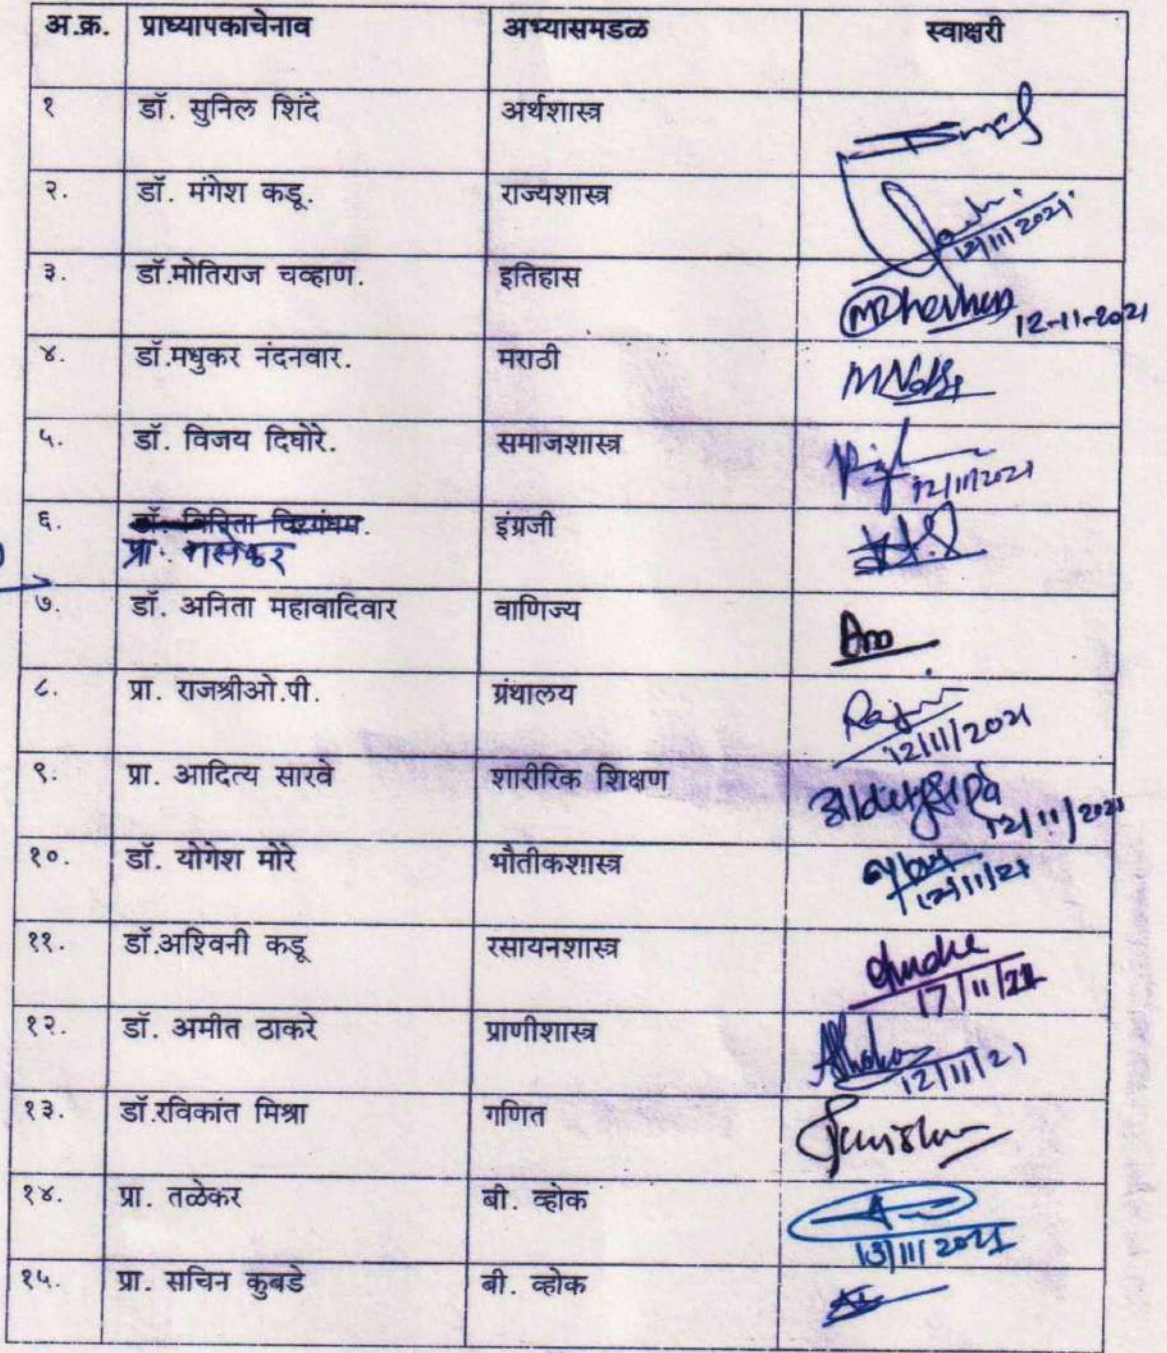 अ.क्र. प्राध्यापकाचेनाव अभ्यासमडळ स्वाक्षरी
१ डॉ. सुनिल शिंदे अर्थशास्त्र
२. डॉ. मंगेश कडू. राज्यशास्त्र 12/11/2021
३. डॉ.मोतिराज चव्हाण. इतिहास 12-11-2021
४. डॉ.मधुकर नंदनवार. मराठी
५. डॉ. विजय दिघोरे. समाजशास्त्र 12/11/2021
६. इंग्रजी
प्रा.
७. डॉ. अनिता महावादिवार वाणिज्य
८. प्रा. राजश्रीओ.पी. ग्रंथालय 12/11/2021
९. प्रा. आदित्य सारवे शारीरिक शिक्षण 12/11/2021
१०. डॉ. योगेश मोरे भौतीकशास्त्र 12/11/21
११. डॉ.अश्विनी कडू रसायनशास्त्र 17/11/21
१२. डॉ. अमीत ठाकरे प्राणीशास्त्र 12/11/21
१३. डॉ.रविकांत मिश्रा गणित
१४. प्रा. तळेकर बी. व्होक 13/11/2021
१५. प्रा. सचिन कुबडे बी. व्होक